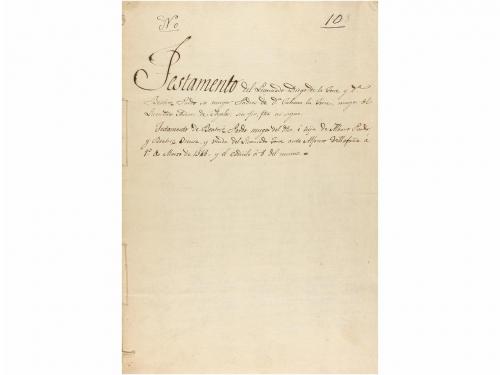 Nº
10
Testamento del Licenciado Diego de la Torre y Dª
Beatriz Pardo su muger Padres de Dª Catalina la Torre, muger del
Licenciado
Testamento de Beatriz Pardo muger del dho i hija de Alonso Pardo
y Beatriz y viuda del Licenciado Torre ante Alfonso Villafaña a
1º de Marzo de 1568 y el Codicilo a 8 del mismo.